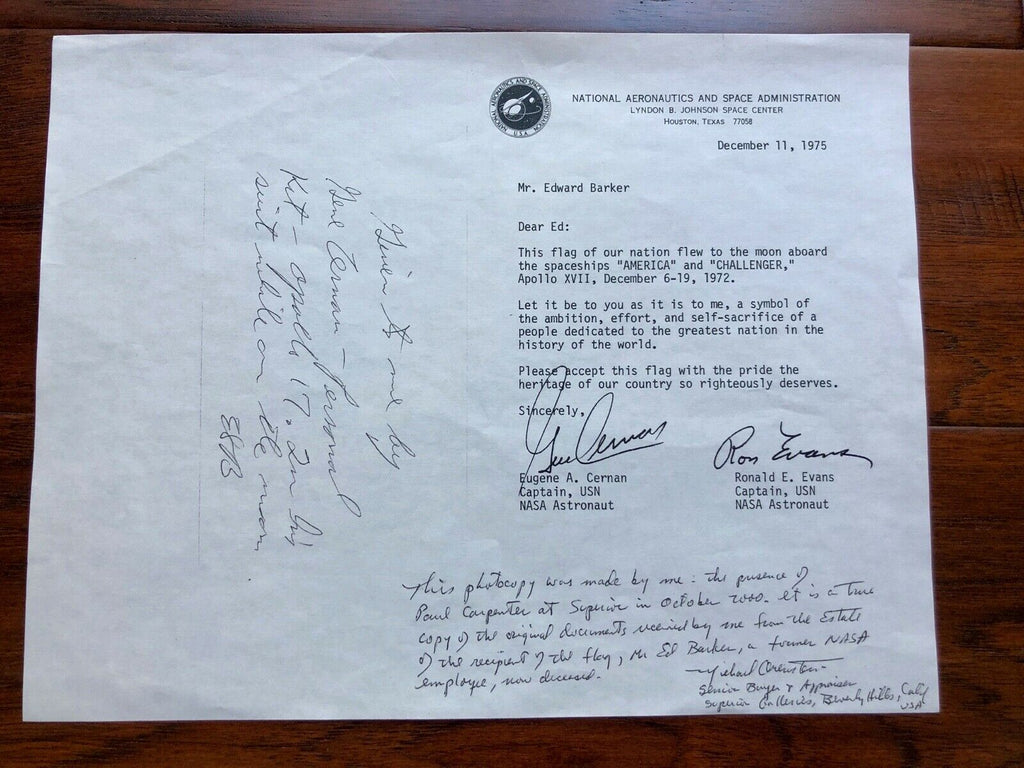 NATIONAL AERONAUTICS AND SPACE ADMINISTRATION
U.S.A.
NATIONAL AERONAUTICS AND SPACE ADMINISTRATION
LYNDON B. JOHNSON SPACE CENTER
HOUSTON, TEXAS 77058
December 11, 1975
Mr. Edward Barker
Dear Ed:
This flag of our nation flew to the moon aboard
the spaceships "AMERICA" and "CHALLENGER,"
Apollo XVII, December 6-19, 1972.
Let it be to you as it is to me, a symbol of
the ambition, effort, and self-sacrifice of a
people dedicated to the greatest nation in the
history of the world.
Please accept this flag with the pride the
heritage of our country so righteously deserves.
Sincerely,
Gene Cernan
Ron Evans
Eugene A. Cernan
Captain, USN
NASA Astronaut
Ronald E. Evans
Captain, USN
NASA Astronaut
Given to me by
Gene Cernan - Personal
Kit - Apollo 17.
suit while on the moon
EB
This photocopy was made by me in the presence of
Paul Carpenter at Superior in October 2000. It is a true
copy of the original documents received by me from the Estate
of the recipient of the flag, Mr Ed Barker, a former NASA
employee, now deceased.
Michael
Senior Buyer & Appraiser
Superior Galleries, Beverly Hills, Calif
USA